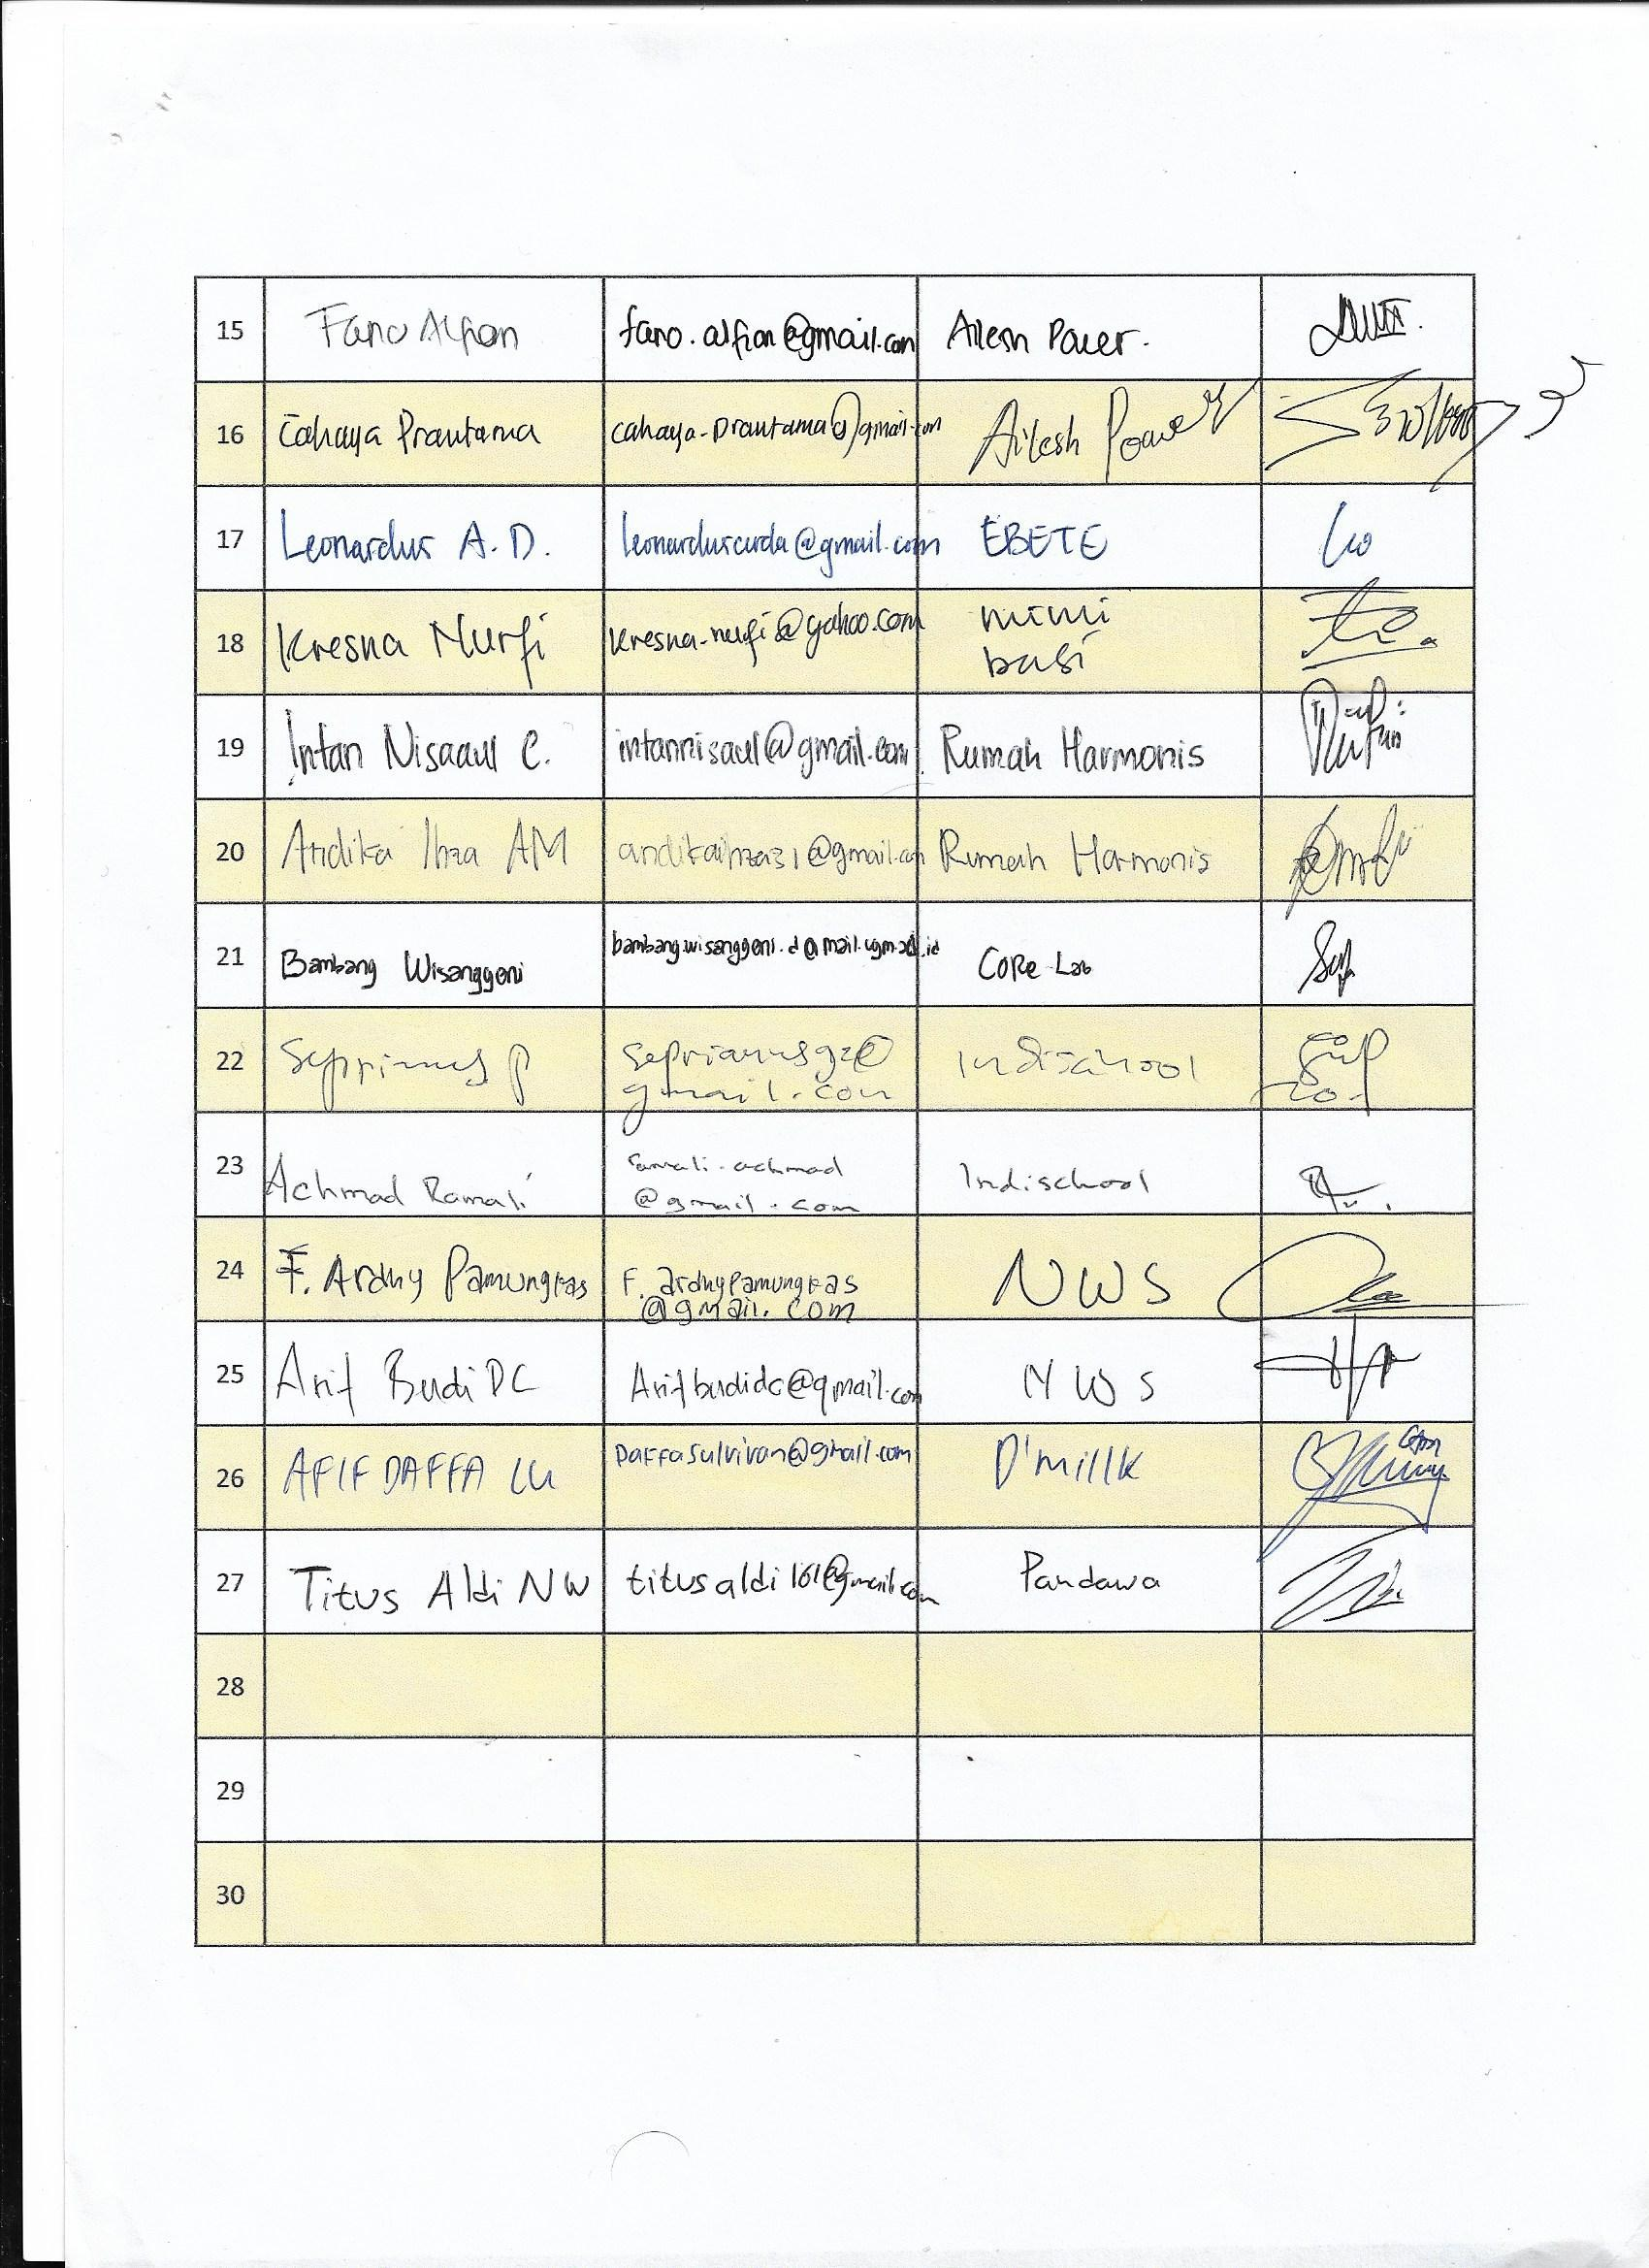 15 Fano Alfian fano.alfian@gmail.com Ailesh Power.
16 Cahaya Prautama cahaya-prautama@gmail.com Ailesh Power
17 Leonardus A. D. @gmail.com EBETE
18 Kresna Nurfi kresna-nurfi@yahoo.com mimi
basi
19 Intan Nisaaul C. intannisaul@gmail.com Rumah Harmonis
20 Andika Ihza AM andikaihza31@gmail.com Rumah Harmonis
21 Bambang Wisanggeni bambang.wisanggeni.d@mail.ugm.ac.id CoRe-Lab
22 P seprianus92@ Indischool
gmail.com
23 Achmad Ramali ramali.achmad Indischool
@gmail.com
24 F. Ardhy Pamungkas F.ardhypamungkas NWS
@gmail.com
25 Arif Budi DC Arifbudidc@gmail.com NWS
26 AFIF DAFFA @gmail.com D'millk
27 Titus Aldi NW titusaldi161@gmail.com Pandawa
28
29
30